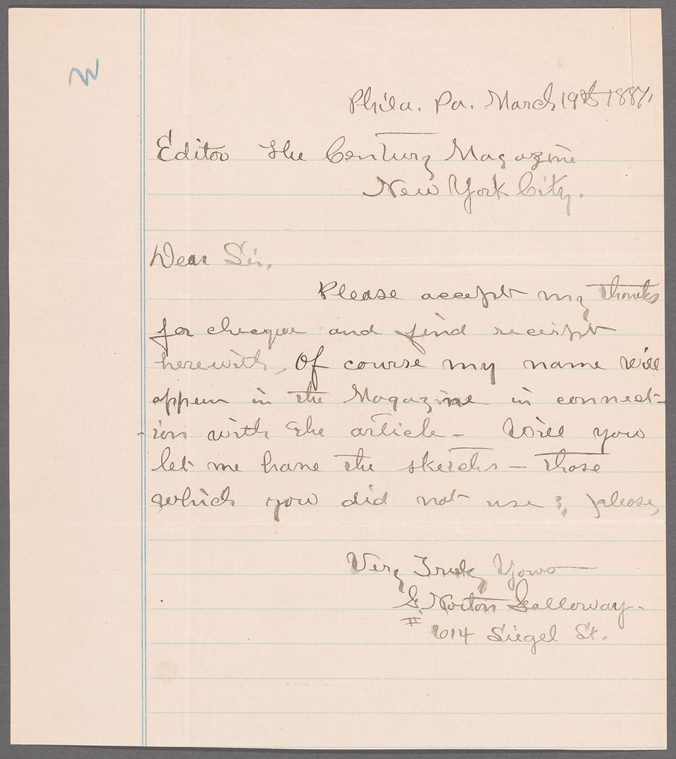 W
Phila. Pa. March 19th 1887,
Editor The Century Magazine
New York City.
Dear Sir,
Please accept my thanks
for cheque and find receipt
herewith, Of course my name will
appear in the Magazine in connect-
-ion with the article - Will you
let me have the sketchs - those
which you did not use ; please,
Very Truly Yours
G. Norton Galloway.
# 614 Siegel St.